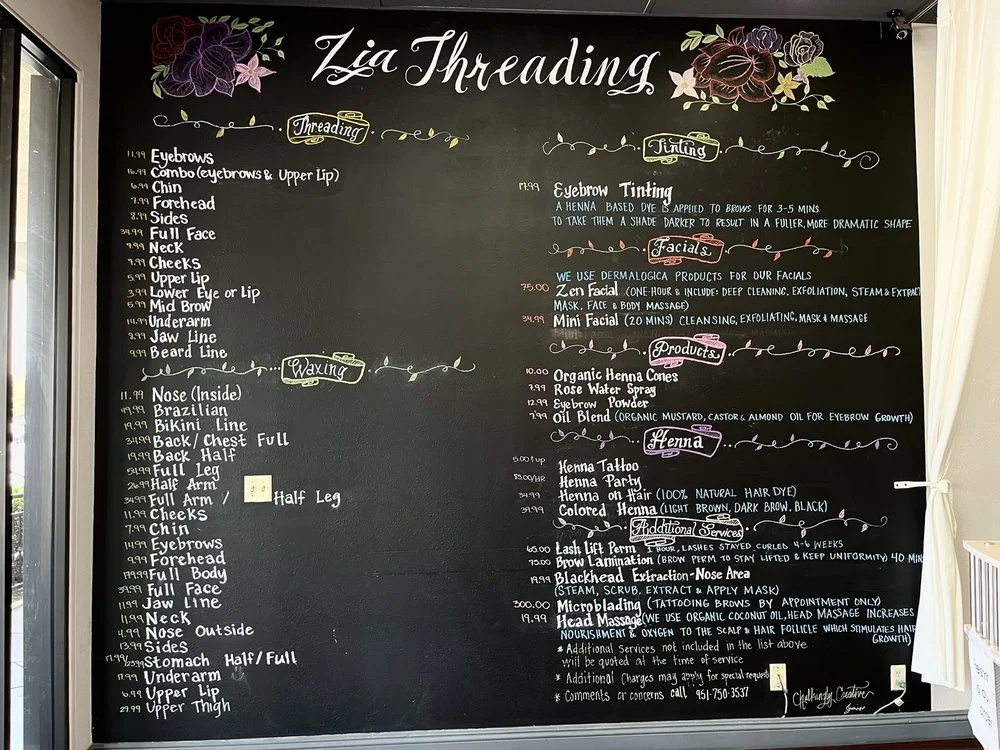 Zia Threading
Threading
11.99 Eyebrows
16.99 Combo (eyebrows & Upper Lip)
6.99 Chin
7.99 Forehead
8.99 Sides
34.99 Full Face
7.99 Neck
7.99 Cheeks
5.99 Upper Lip
3.99 Lower Eye or Lip
5.99 Mid Brow
14.99 Underarm
8.99 Jaw Line
9.99 Beard Line
Waxing
11.99 Nose (Inside)
49.99 Brazilian
19.99 Bikini Line
34.99 Back/Chest Full
19.99 Back Half
54.99 Full Leg
26.99 Half Arm
34.99 Full Arm / Half Leg
11.99 Cheeks
7.99 Chin
14.99 Eyebrows
9.99 Forehead
179.99 Full Body
39.99 Full Face
11.99 Jaw Line
11.99 Neck
4.99 Nose Outside
13.99 Sides
Stomach Half/Full
17.99 Underarm
6.99 Upper Lip
27.99 Upper Thigh
Tinting
17.99 Eyebrow Tinting
A HENNA BASED DYE IS APPLIED TO BROWS FOR 3-5 MINS
TO TAKE THEM A SHADE DARKER TO RESULT IN A FULLER, MORE DRAMATIC SHAPE
Facials
WE USE DERMALOGICA PRODUCTS FOR OUR FACIALS
75.00 Zen Facial (ONE-HOUR & INCLUDE: DEEP CLEANING, EXFOLIATION, STEAM & EXTRACT
MASK, FACE & BODY MASSAGE)
34.99 Mini Facial (20 MINS) CLEANSING, EXFOLIATING, MASK & MASSAGE
Products
10.00 Organic Henna Cones
7.99 Rose Water Spray
12.99 Eyebrow Powder
7.99 Oil Blend (ORGANIC MUSTARD, CASTOR & ALMOND OIL FOR EYEBROW GROWTH)
Henna
5.00 & up Henna Tattoo
85.00/HR Henna Party
34.99 Henna on Hair (100% NATURAL HAIR DYE)
39.99 Colored Henna (LIGHT BROWN, DARK BROW, BLACK)
Additional Services
65.00 Lash Lift Perm 1 HOUR, LASHES STAYED CURLED 4-6 WEEKS
75.00 Brow Lamination (BROW PERM TO STAY LIFTED & KEEP UNIFORMITY) 40 MIN
19.99 Blackhead Extraction-Nose Area
(STEAM, SCRUB, EXTRACT & APPLY MASK)
300.00 Microblading (TATTOOING BROWS BY APPOINTMENT ONLY)
19.99 Head Massage (WE USE ORGANIC COCONUT OIL, HEAD MASSAGE INCREASES
NOURISHMENT & OXYGEN TO THE SCALP & HAIR FOLLICLE WHICH STIMULATES HAIR
GROWTH)
* Additional Services not included in the list above
will be quoted at the time of service
* Additional Charges may apply for special requests
* Comments or concerns call 951-750-3537
Chalkingly Creative